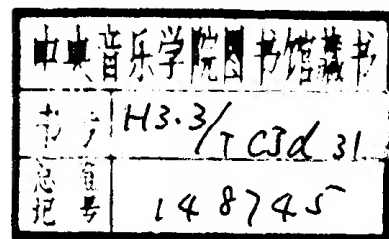 中央音乐学院图书馆藏书
书号 H3.3/TC3d 31
总记 登号 148745